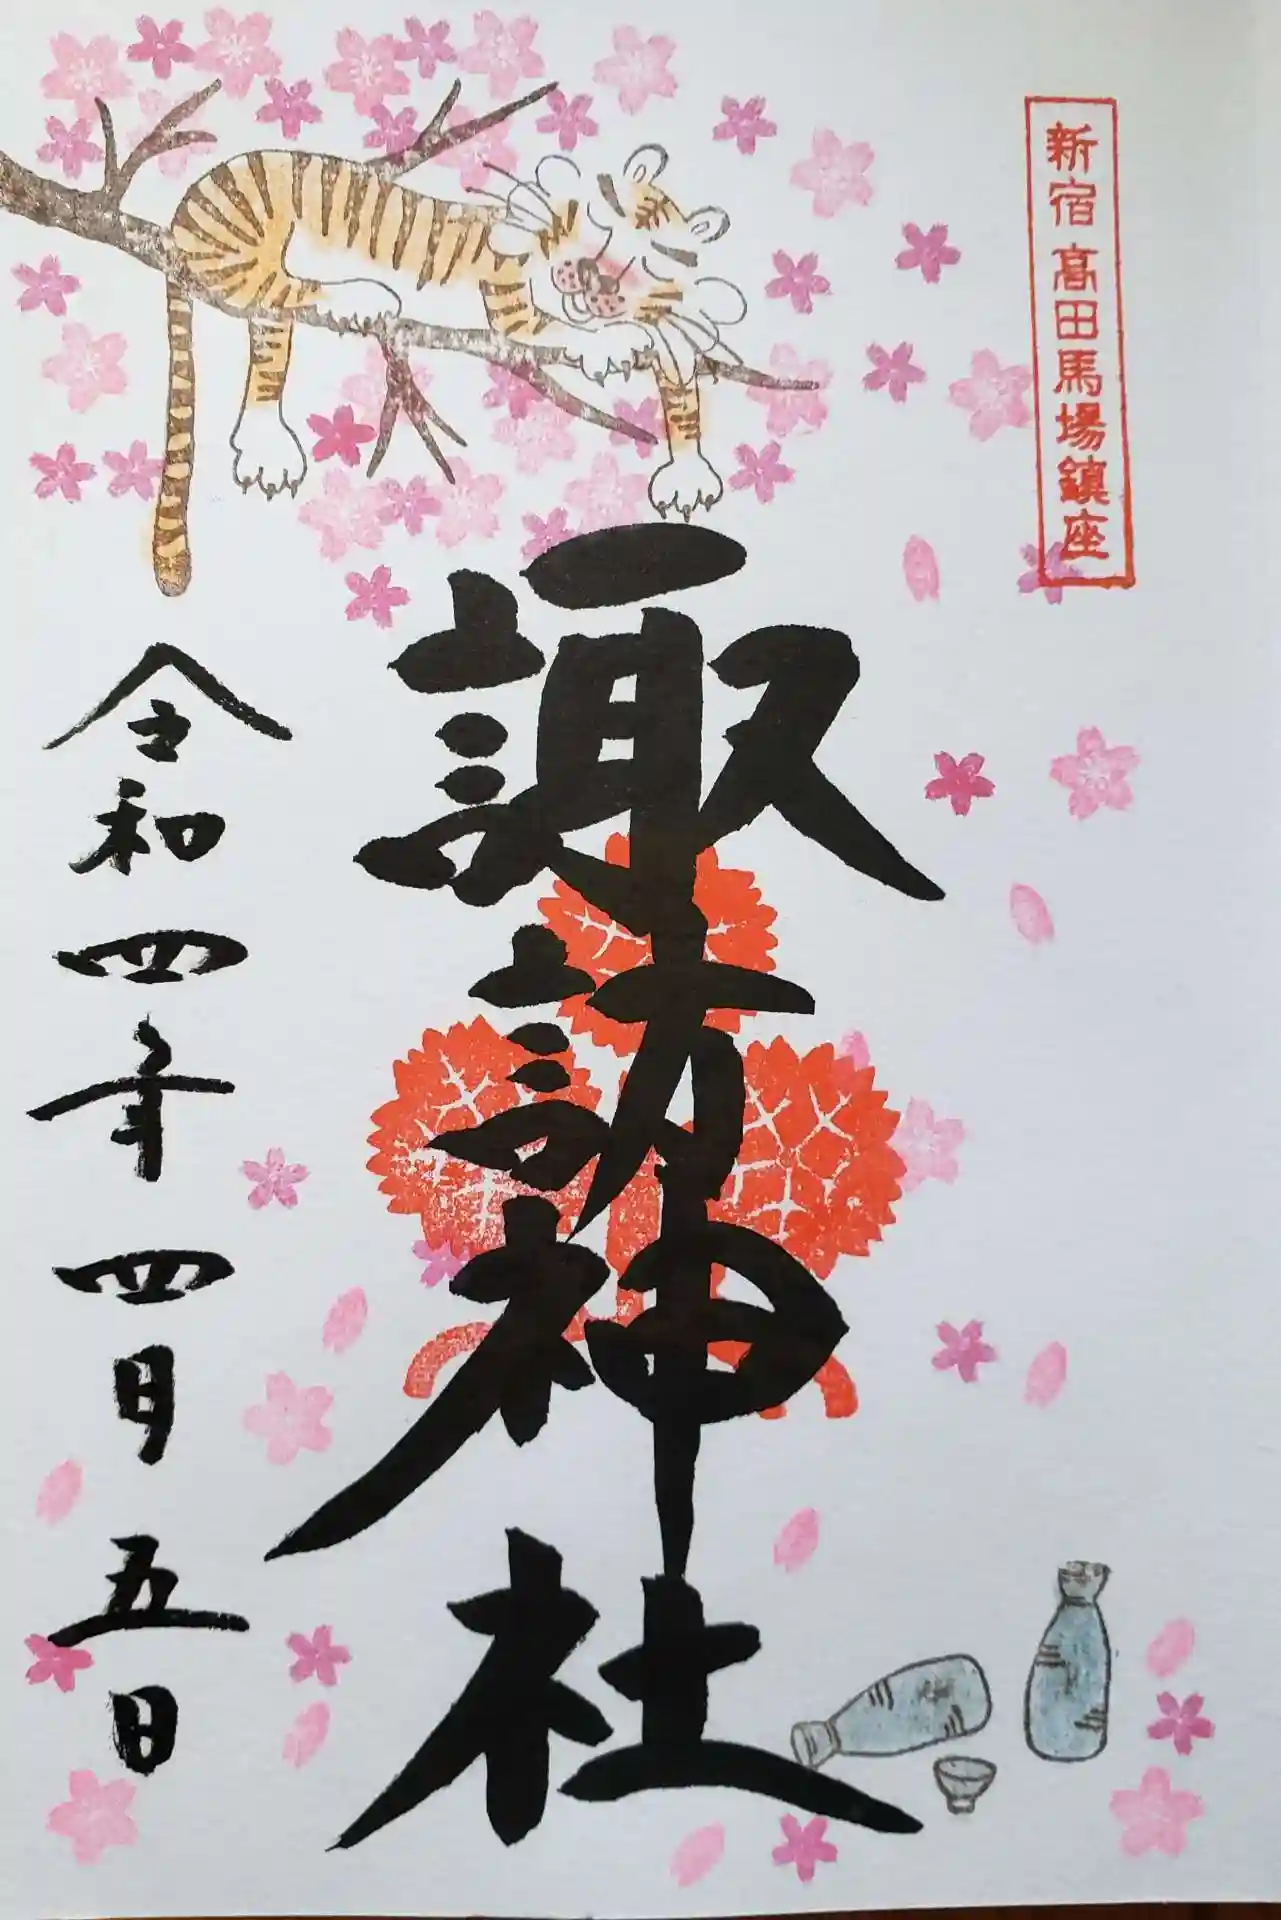 新宿高田馬場鎮座
諏訪神社
令和四年四月五日